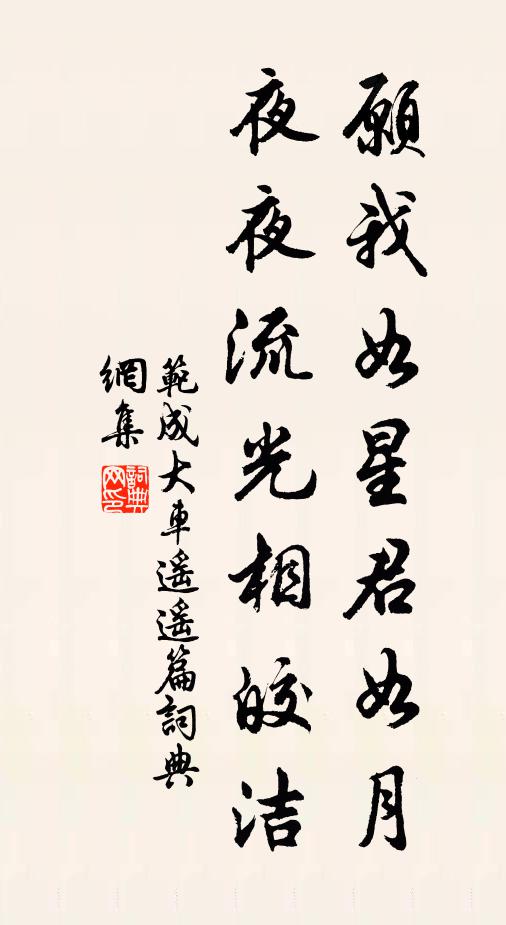 願我如星君如月
夜夜流光相皎洁
範成大車遥遥篇詞典
網集
詞典網印